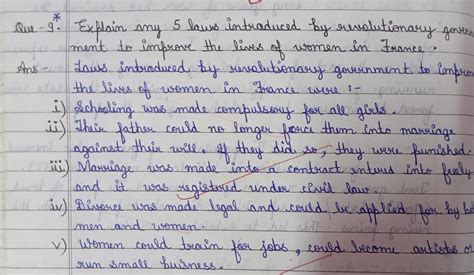 Que-9.* Explain any 5 laws introduced by revolutionary govern
ment to improve the lives of women in France.
Ans - Laws introduced by revolutionary government to impro
the lives of women in France were :-
i) Schooling was made compulsory for all girls.
ii) Their father could no longer force them into marriage
against their will. If they did so, they were punished.
iii) Marriage was made into a contract enters into freely
and it was registered under civil law.
iv) Divorce was made legal and could be applied for by bo
men and women.
v) Women could train for jobs, could become artists or
run small business.